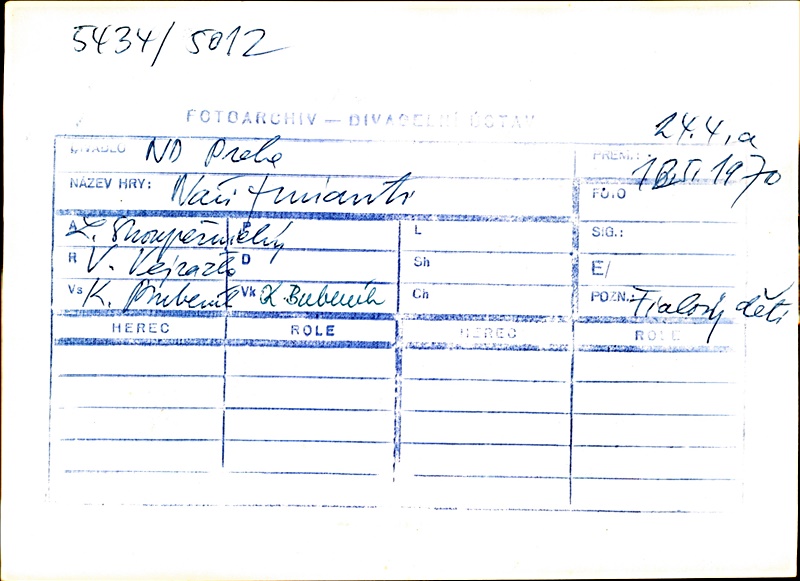 5434/ 5012
FOTOARCHIV — DIVADELNÍ ÚSTAV
24.4. a
DIVADLO ND Praha
PREM.: 1970
NÁZEV HRY: Naši furianti
FOTO
A L. Stroupežnický
L
SIG.:
R V. Vejražka
D
Sh
E/
Vs K. Bubeník
Vk K. Bubeník
Ch
POZN.: Fialový děti
HEREC ROLE HEREC ROLE